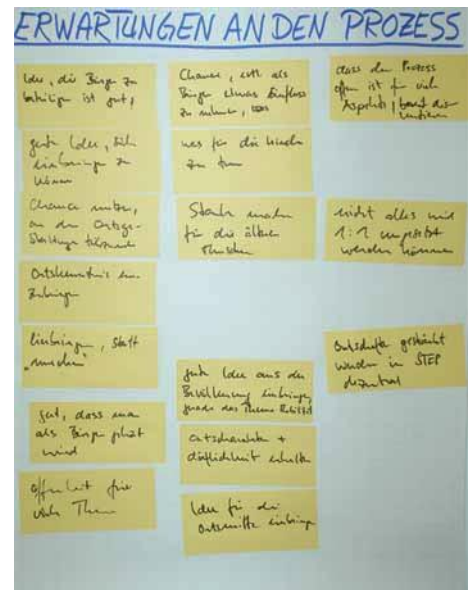 ERWARTUNGEN AN DEN PROZESS
Idee, die Bürger zu
beteiligen ist gut,
gute Idee, sich
einbringen zu
können
Chance nutzen,
an der Ortsge-
staltung
Ortskenntnis ein-
zubringen
einbringen, statt
"meckern"
gut, dass man
als Bürger gehört
wird
Offenheit für
viele Themen
Chance, evtl. als
Bürger etwas Einfluss
zu nehmen,
was für die Kinder
zu tun
Stark machen
für die älteren
Menschen
gute Idee aus der
Bevölkerung einbringen,
gerade das Thema Mobilität
Ortscharakter +
dörflichkeit erhalten
Idee für die
Ortsmitte einbringen
dass der Prozess
offen ist für viele
Aspekte,
nicht alles wird
1:1 umgesetzt
werden können
Ortschaften gestärkt
werden in STEP
dezentral